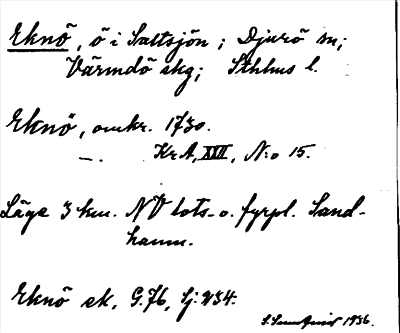 Eknö, ö i Saltsjön; Djurö sn;
Värmdö skg; Sthlms l.
Eknö, omkr. 1730.
—. KrA, XXII, N:o 15.
Läge 3 km. NV lots- o. fyrpl. Sand-
hamn.
Eknö ek. G. 76, Sj 234.
1936.